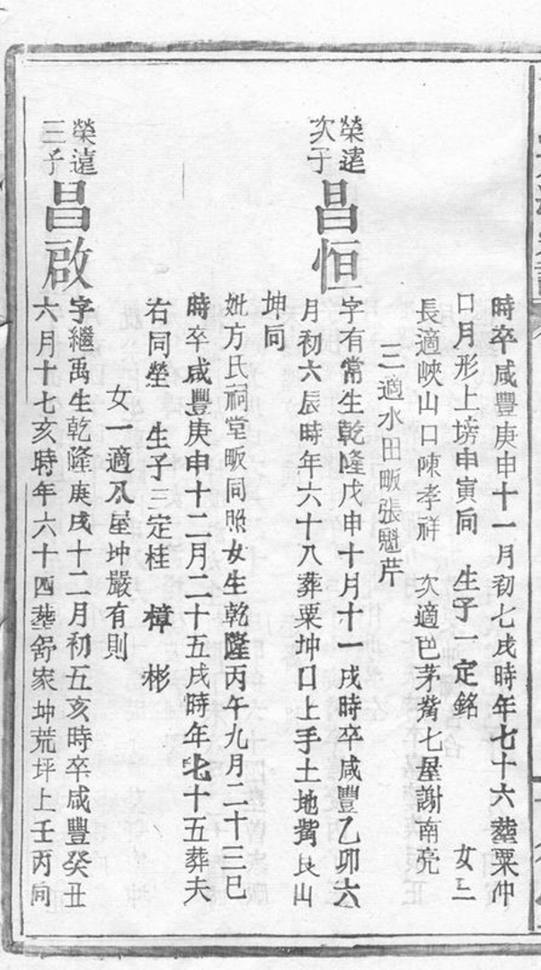 時卒咸豐庚申十一月初七戌時年七十六塟粟冲
口月形上塝申寅同 生子一定銘 女三
長適峽山口陳孝祥 次適巴茅觜七屋謝南亮
三適水田畈張魁芹
榮遠
次子
昌恒
字有常生乾隆戊申十月十一戌時卒咸豐乙卯六
月初六辰時年六十八葬粟坤口上手土地觜艮山
坤同
妣方氏祠堂畈同照女生乾隆丙午九月二十三巳
時卒咸豐庚申十二月二十五戌時年七十五葬夫
右同塋 生子三定桂 樟 彬
女一適八屋坤嚴有則
榮遠
三子
昌啟
字繼禹生乾隆庚戌十二月初五亥時卒咸豐癸丑
六月十七亥時年六十四塟舒家坤荒坪上壬丙同